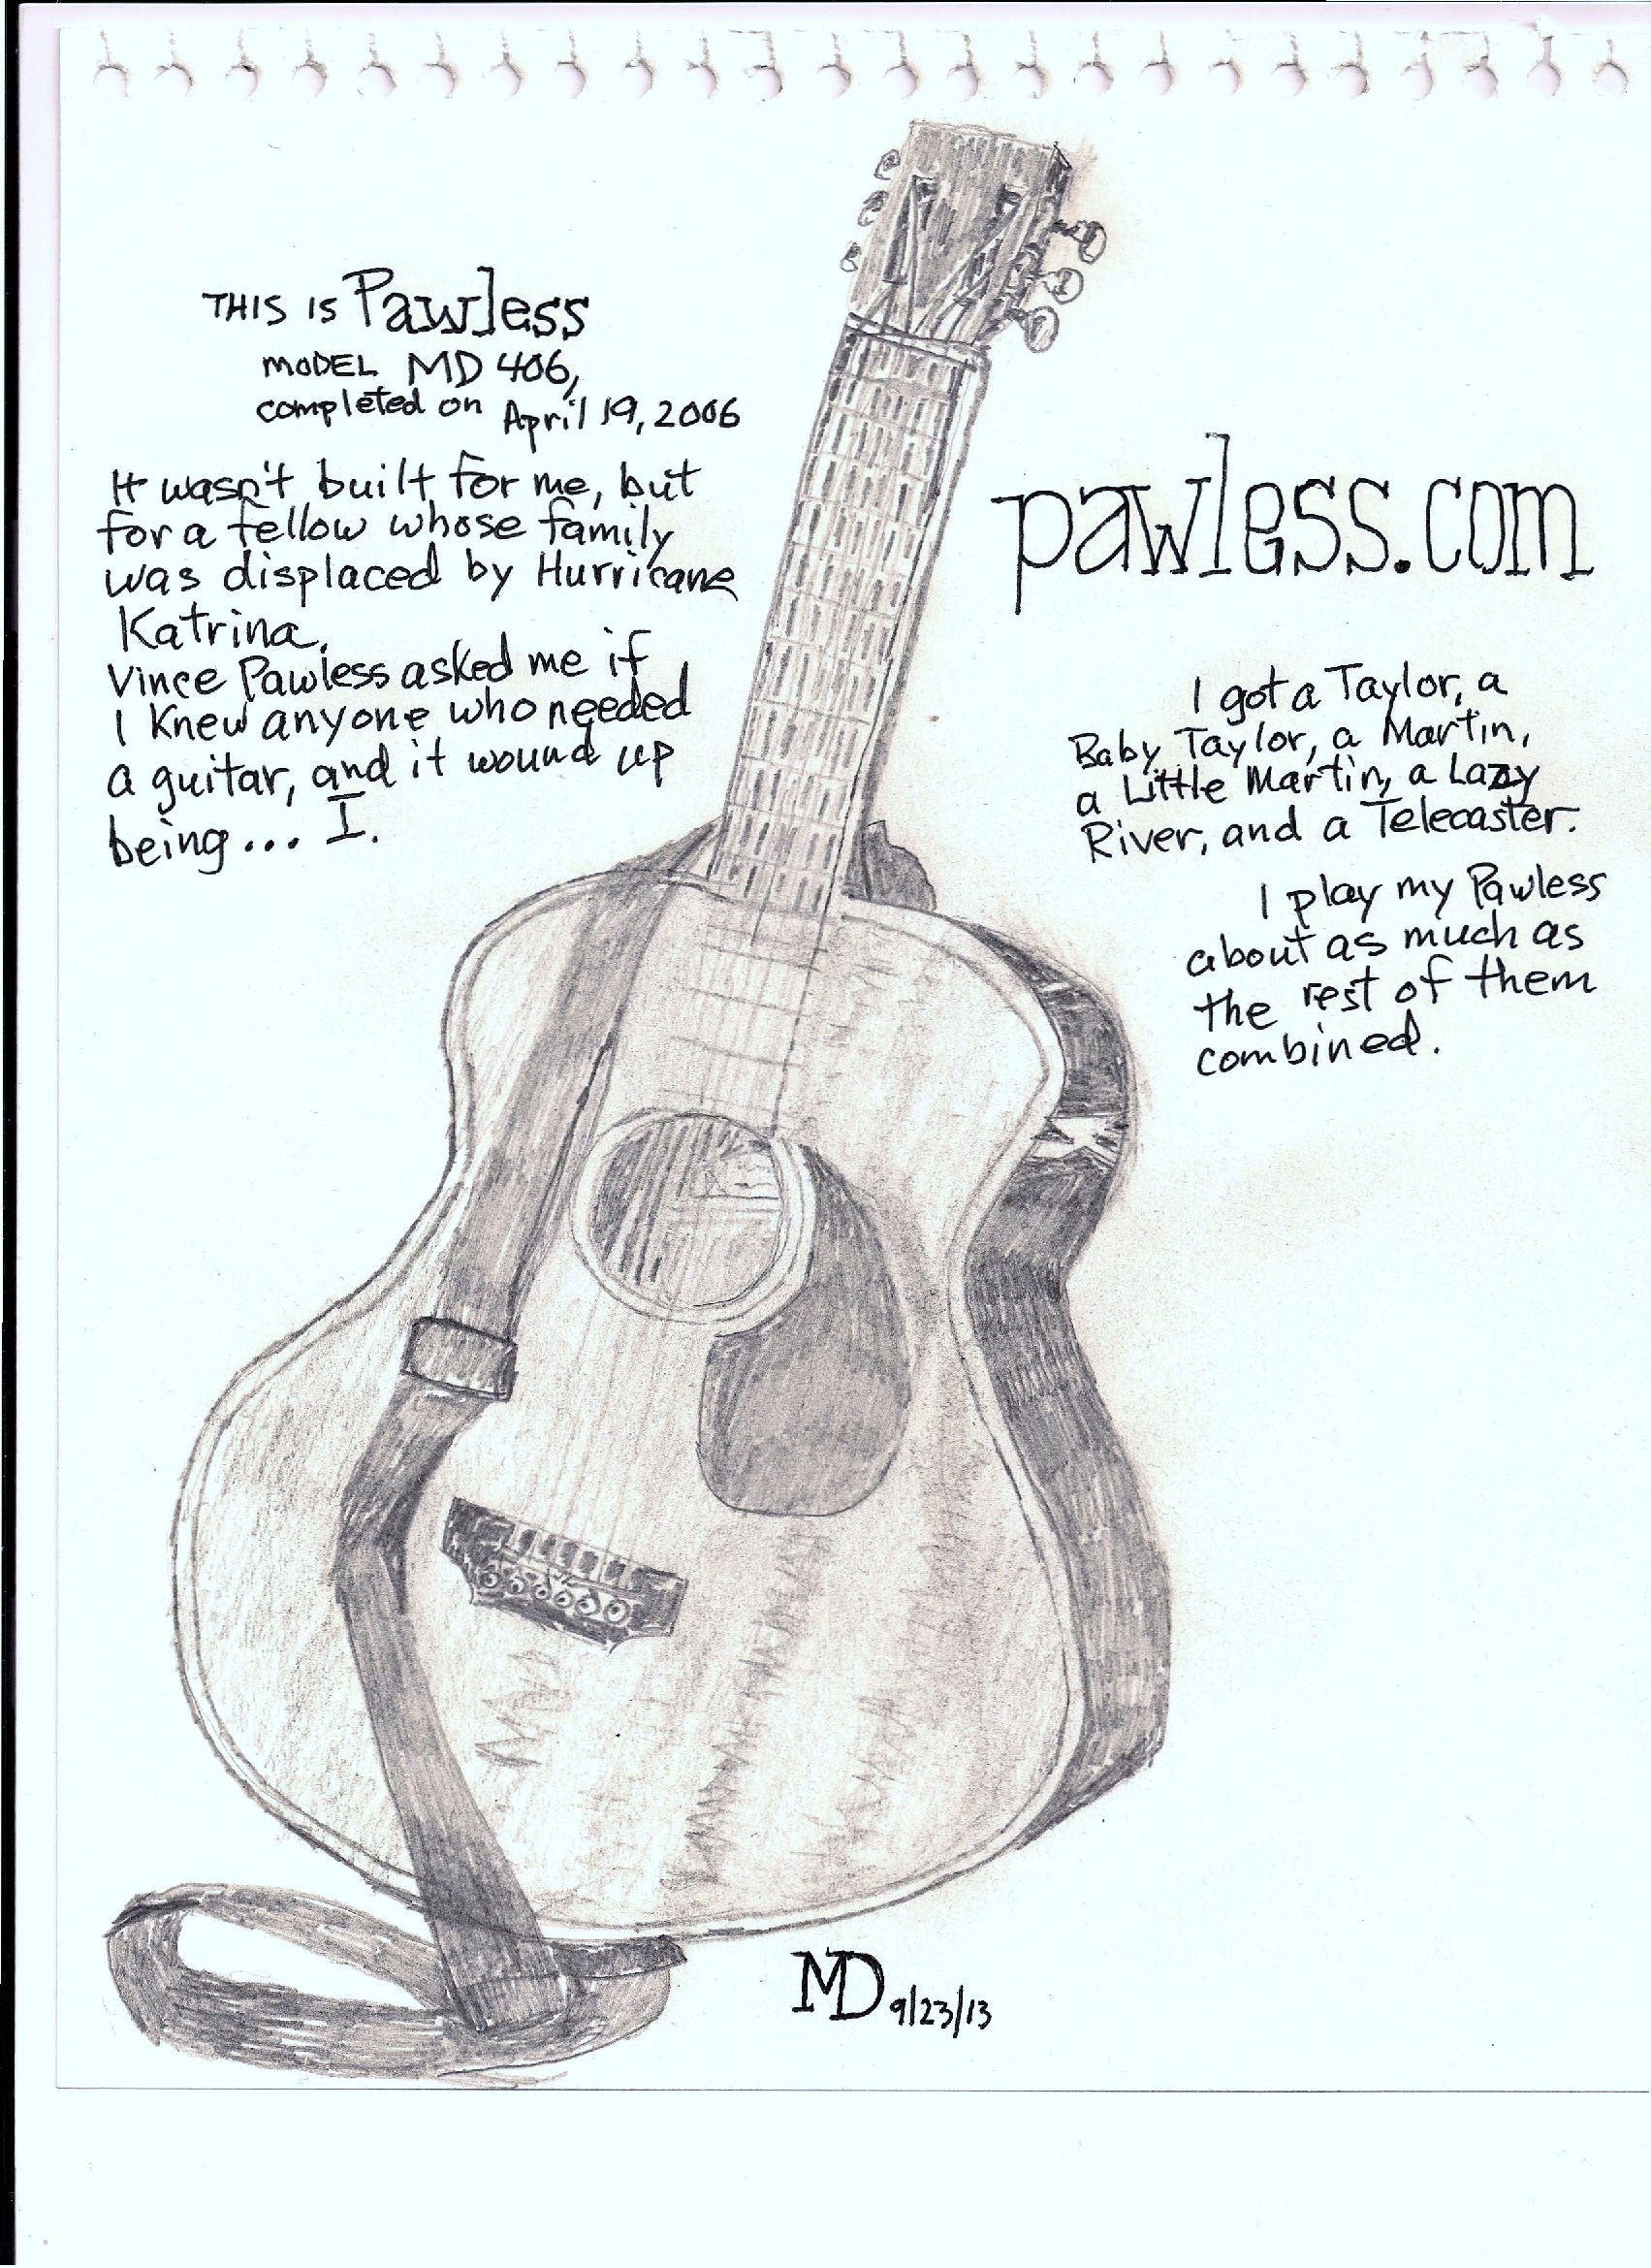 THIS IS Pawless
MODEL MD 406,
completed on April 19, 2006
It wasn't built for me, but
for a fellow whose family
was displaced by Hurricane
Katrina.
Vince Pawless asked me if
I knew anyone who needed
a guitar, and it wound up
being... I.
pawless.com
I got a Taylor, a
Baby Taylor, a Martin,
a Little Martin, a Lazy
River, and a Telecaster.
I play my Pawless
about as much as
the rest of them
combined.
MD 9/23/13